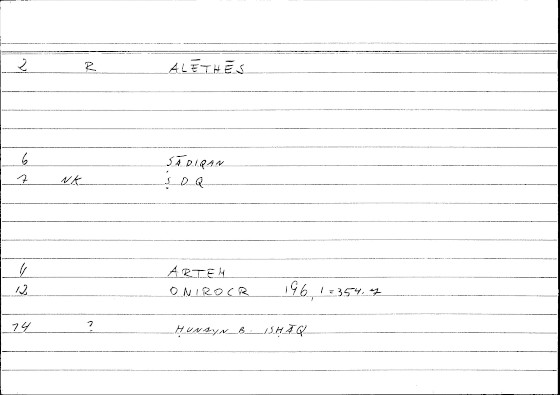 2 R ALĒTHĒS
6 ṢĀDIQAN
7 NK Ṣ D Q
4 ARTEM
12 ONIROCR 196, 1 = 354.7
14 ? ḤUNAYN B. ISḤĀQ